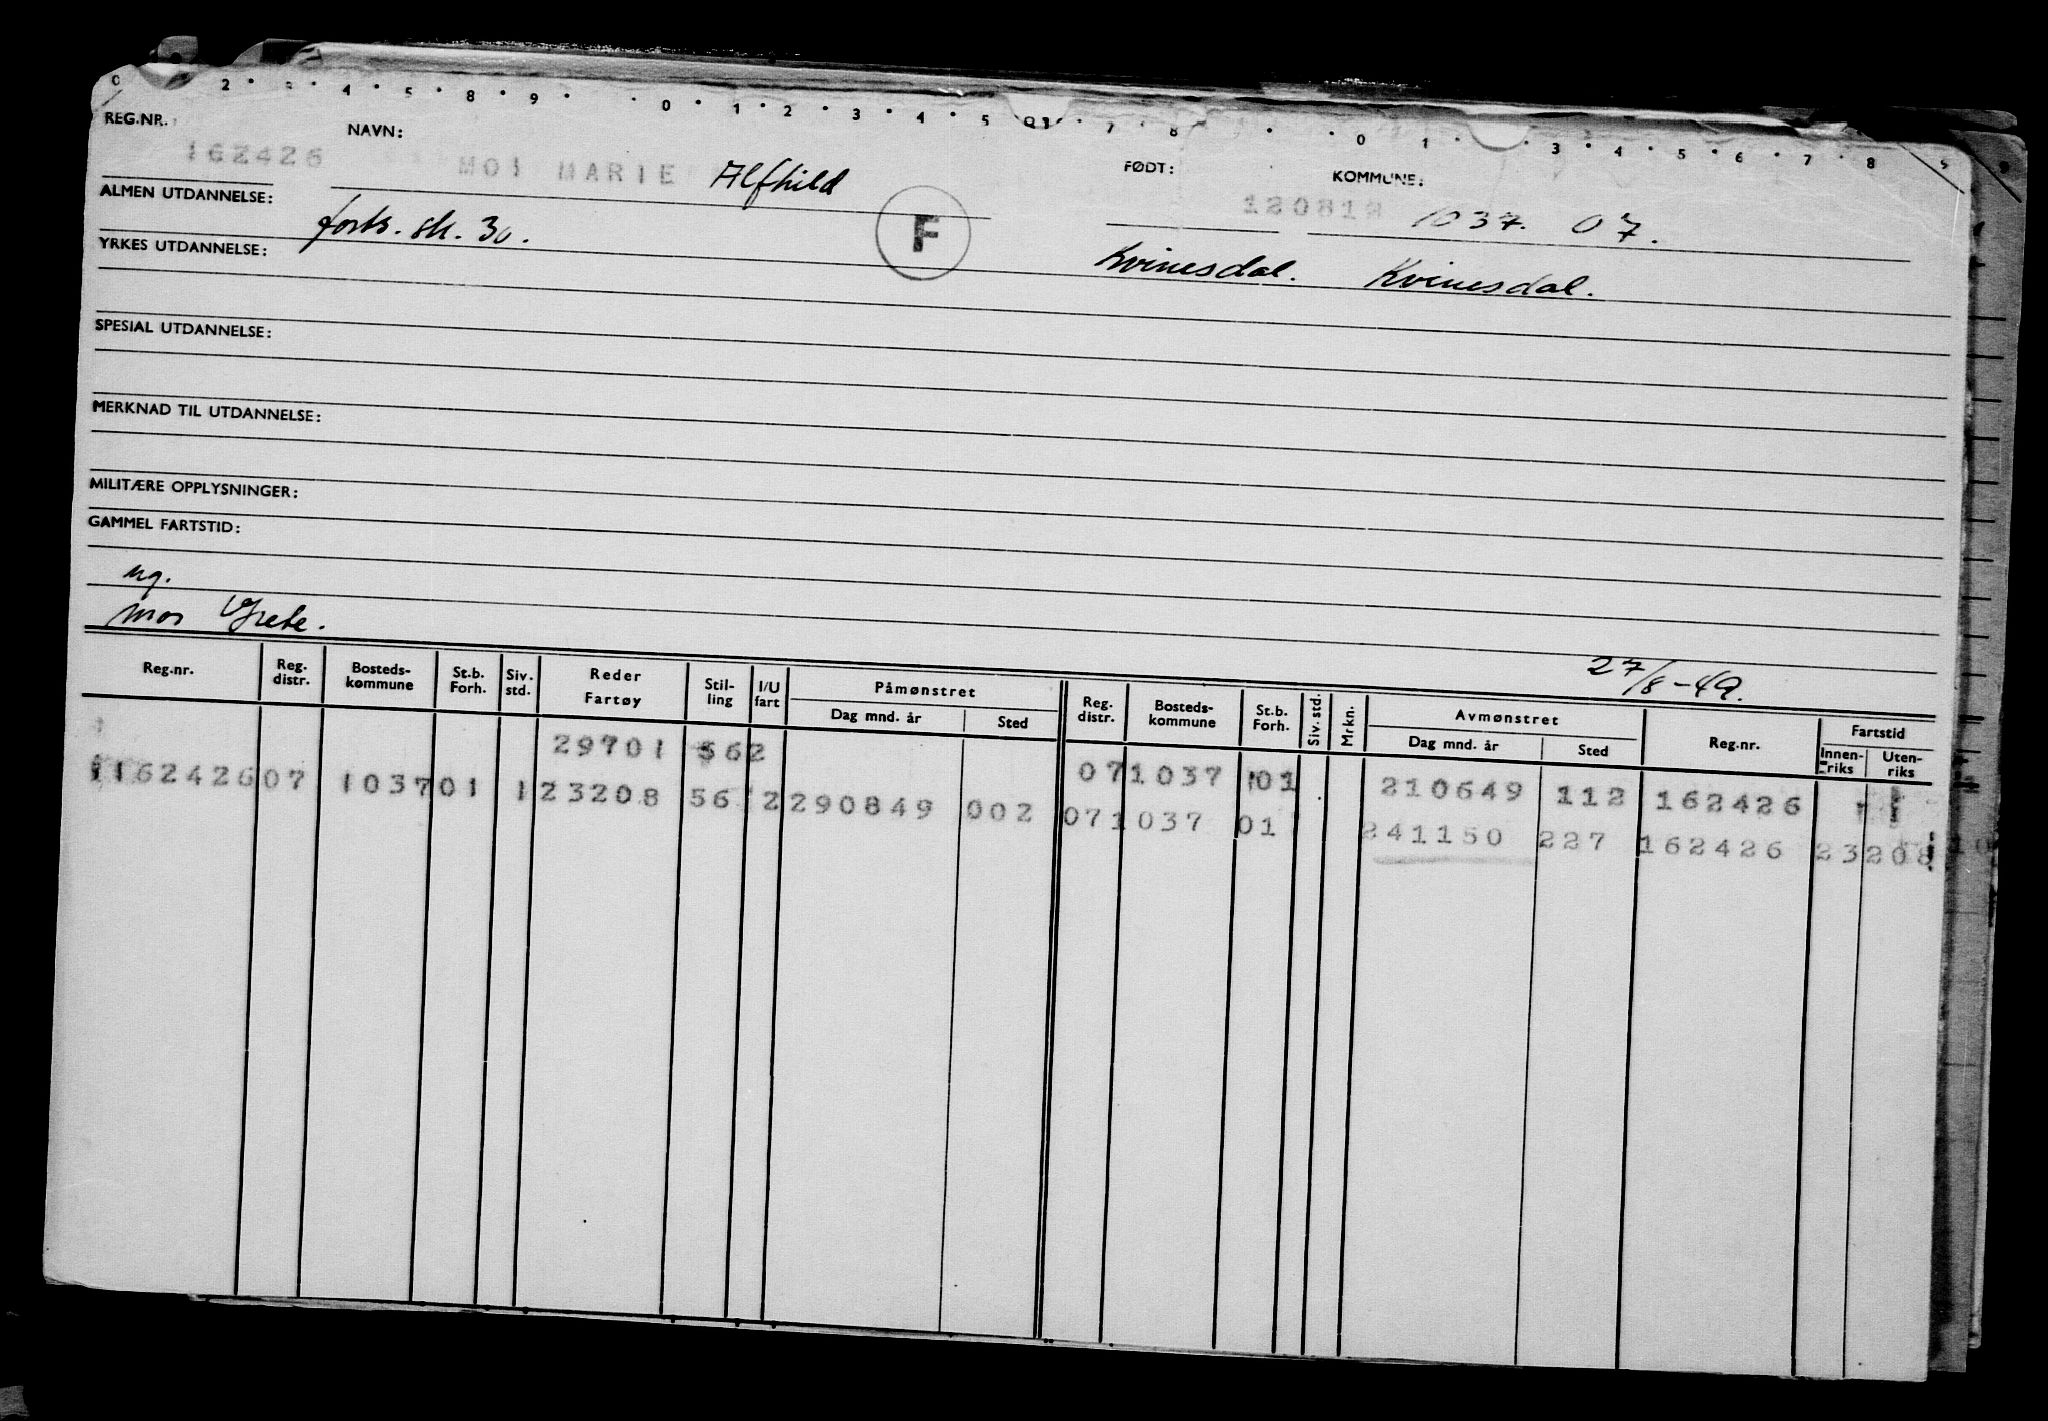 0 2 · · 4 · 5 · 8 · 9 · · 0 · 1 · 2 · 3 · 4 · 5 · 7 · 8 · · 0 · 1 · · 3 · 4 · 5 · 6 · 7 · 8 9
REG.NR. NAVN: FØDT: KOMMUNE:
162426 MOI MARIE Alfhild 120812 1037. 07.
ALMEN UTDANNELSE: forts. sk. 30. F
YRKES UTDANNELSE: Kvinesdal. Kvinesdal.
SPESIAL UTDANNELSE:
MERKNAD TIL UTDANNELSE:
MILITÆRE OPPLYSNINGER:
GAMMEL FARTSTID:
ug.
mor Grete.
27/8-49.
Reg.nr. Reg. distr. Bosteds-kommune St.b. Forh. Siv. std. Reder Fartøy Stil-ling I/U fart Påmønstret Dag mnd. år Sted Reg. distr. Bosteds-kommune St.b. Forh. Siv. std. Mrkn. Avmønstret Dag mnd. år Sted Reg.nr. Fartstid Innen-riks Uten-riks
29701 562 07 1037 01 210649 112 162426
162426 07 1037 01 1 23208 56 2 290849 002 07 1037 01 241150 227 162426 23208